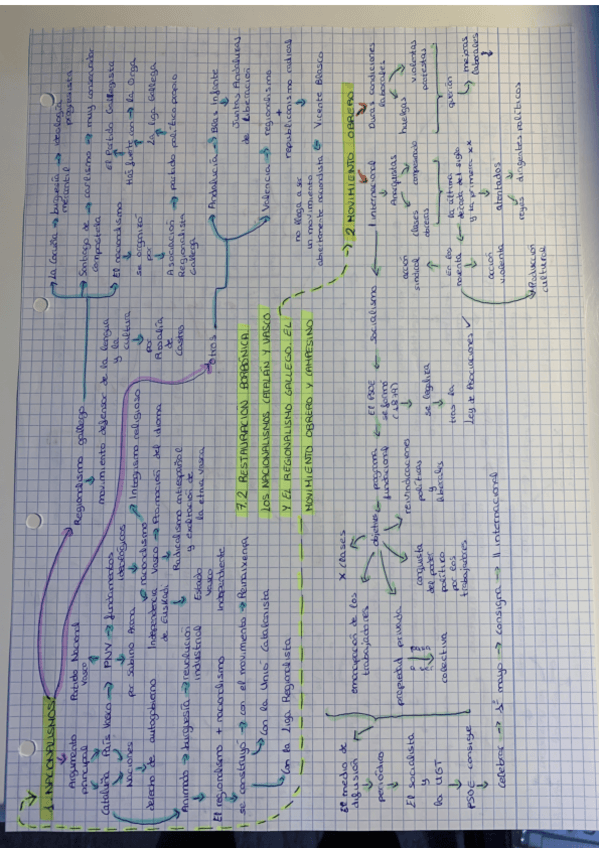 7.2 RESTAURACIÓN BORBÓNICA.
LOS NACIONALISMOS CATALÁN Y VASCO
Y EL REGIONALISMO GALLEGO. EL
MOVIMIENTO OBRERO Y CAMPESINO
1. NACIONALISMOS
Argumento
principal
Cataluña País Vasco → PNV → fundamentos
ideológicos
Partido Nacional
Vasco
Naciones
por Sabino Arana
nacionalismo
Integrismo religioso
derecho de autogobierno
Independencia Vasca → Promoción del idioma
de Euskadi
Radicalismo antiespañol
y exaltación de
la etnia vasca
Estado
vasco
Independiente
Animado → burguesía → revolución
industrial
El regionalismo + nacionalismo
se construyó → con el movimiento → Renaixença
Con la Unió Catalanista
Con la Lliga Regionalista
Regionalismo gallego
movimiento defensor de la lengua
y la
cultura
por
Rosalía
de
Castro
La Coruña → burguesía → ideología
mercantil
progresista
Santiago de → carlismo → muy conservador
Compostela
El nacionalismo
se organizó
por
Asociación → partido político propio
Regionalista
Gallega
el Partido Galleguista
Más fuerte con → la Lliga
La Liga Gallega
Otros
Andalucía → Blas Infante
Juntas Andaluzas
de Liberación
Valencia → regionalismo
+
republicanismo radical
Vicente Blasco
no llega a ser
un movimiento
abiertamente nacionalista
2 MOVIMIENTO OBRERO
Duras condiciones
laborales
huelgas
violentas
protestas
querían
mejoras
laborales
I internacional
Anarquistas
clases
obreras
campesinado
acción
sindical
En los
noventa
la última
década del siglo
y la primera XX
acción
violenta
atentados
reyes
dirigentes políticos
Radiación
cultural
socialismo
El PSOE
se formó
(1879)
se legaliza
tras la
Ley de Asociaciones
programa
fundacional
objetivos
reivindicaciones
políticas
y
laborales
conquista
del poder
político
por los
trabajadores
X clases
emancipación de los
trabajadores
propiedad privada
colectiva
El medio de
difusión
periódico
El socialista
y
la UGT
PSOE consigue
Celebrar → 1º mayo → consigna → II internacional